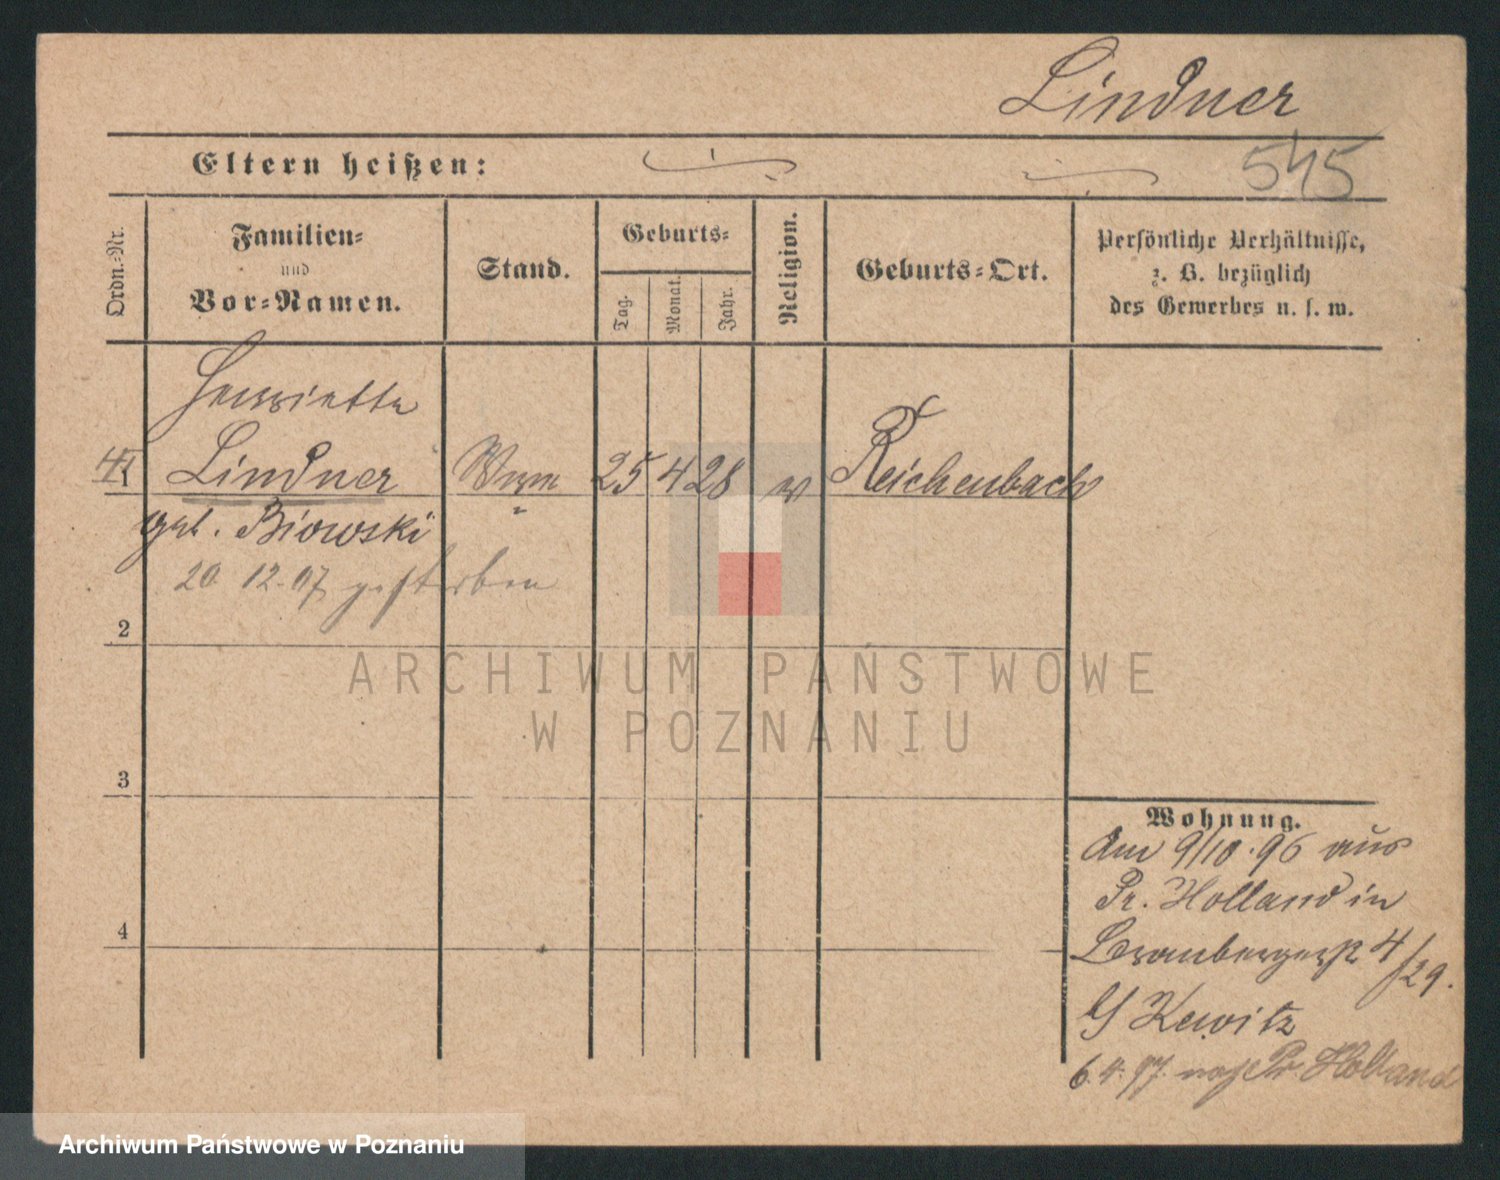 Lindner
545
Eltern heißen:
Ordn.-Nr.
Familien-
und
Vor-Namen.
Stand.
Geburts-
Tag.
Monat.
Jahr.
Religion.
Geburts-Ort.
Persönliche Verhältnisse,
z. B. bezüglich
des Gewerbes u. s. w.
Henriette
Lindner
25 4 28
Reichenbach
geb. Biowski
20 12. 07 gestorben
2
3
4
Wohnung.
Am 9/10. 96 aus
Pr. Holland in
4/29.
Kewitz
6. 4. 97. nach Pr. Holland
ARCHIWUM PAŃSTWOWE
W POZNANIU
Archiwum Państwowe w Poznaniu